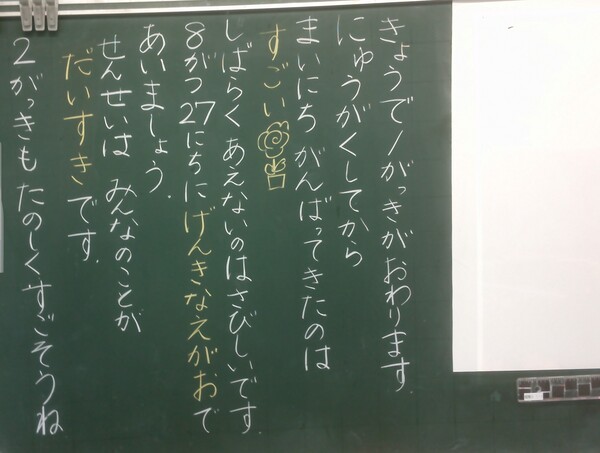 きょうで1がっきがおわります
にゅうがくしてから
まいにち がんばってきたのは
すごい
しばらく あえないのはさびしいです.
8がつ27にちにげんきなえがおで
あいましょう.
せんせいは みんなのことが
だいすきです.
2がっきも たのしくすごそうね